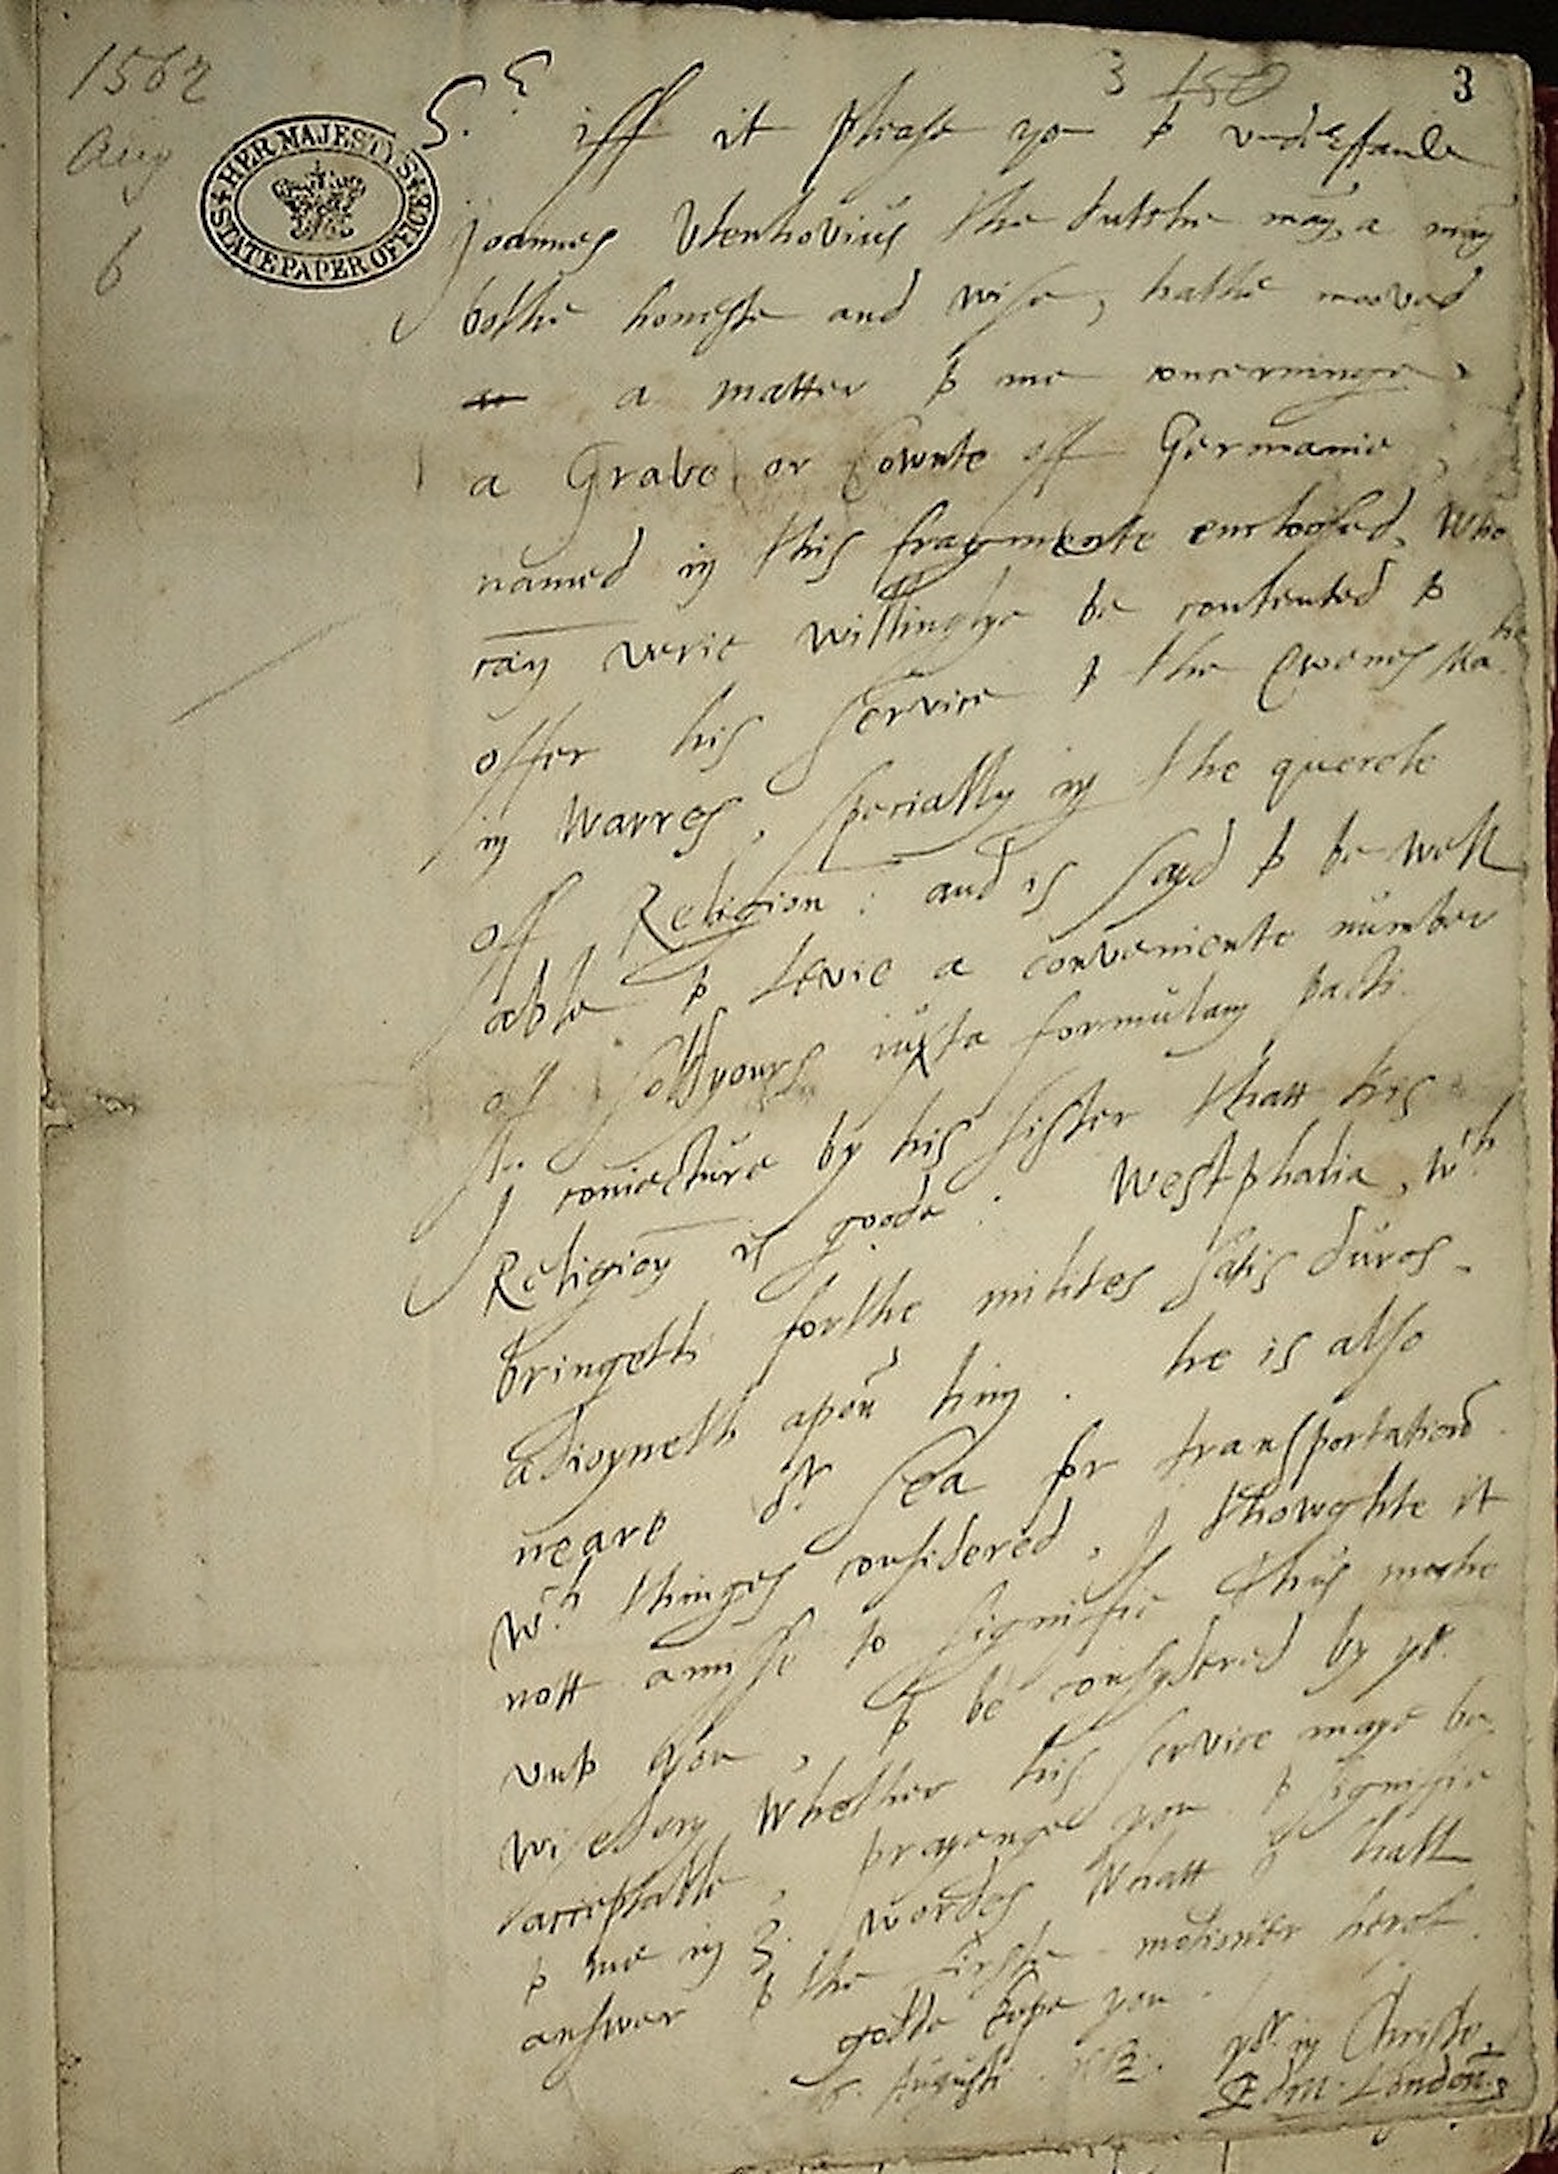 1562
Aug
6
HER MAJESTY'S STATE PAPER OFFICE
3 150
3
S.r iff it please yo to understande
Joannes Utenhovius the dutche man, a man
bothe honeste and wise, hathe moved
a matter to me concerninge
a Grave or Counte off Germanie,
named in this fragmente enclosed, Who
can verie willinglye be contented to
offer his service to the Quenes Ma.tie
in Warres, speciallly in the querele
off Religion : and is sayd to be well
able to levie a conveniente number
off soldyours iuxta formulam pacti.
I coniecture by his sister thatt his
Religion is goode : Westphalia, w.ch
bringeth forthe milites satis duros
adioyneth apon him . he is also
neare y.e sea for transportation.
w.ch thinges considered, I thowghte it
nott amisse to signifie thus moche
unto you, to be consydered by yo.r
wisedom Whether his service maye be
acceptable, prayenge you to signifie
to me in 3. wordes Whatt I shall
answer to the firste motioner herof.
godde kepe you.
6. Augusti. 1562. yo.r in Christe,
Edm. London.